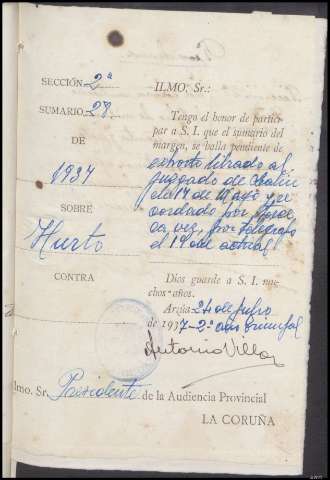 SECCIÓN 2ª
SUMARIO 28
DE
1937
SOBRE
Hurto
CONTRA
ILMO. Sr.:
Tengo el honor de partici-
par a S. I. que el sumario del
margen, se halla pendiente de
exhorto librado al
juzgado de
el 14 de Mayo y re
cordado por
ca vez, por telegrafo
el 19 del actual
Dios guarde a S. I. mu-
chos años.
Arzúa 24 de Julio
de 1937-2º año triunfal
Antonio Villar
Ilmo. Sr. Presidente de la Audiencia Provincial
LA CORUÑA